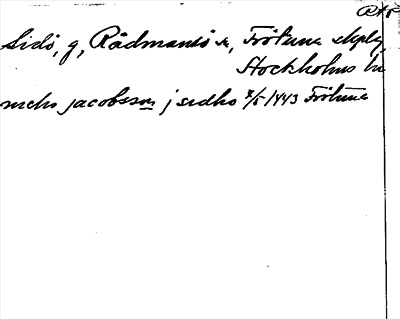 Sidö, g, Rådmansö sn, Frötuna skplg,
Stockholms län
niclis jacobsson j sidhö 8/5 1443 Frötuna